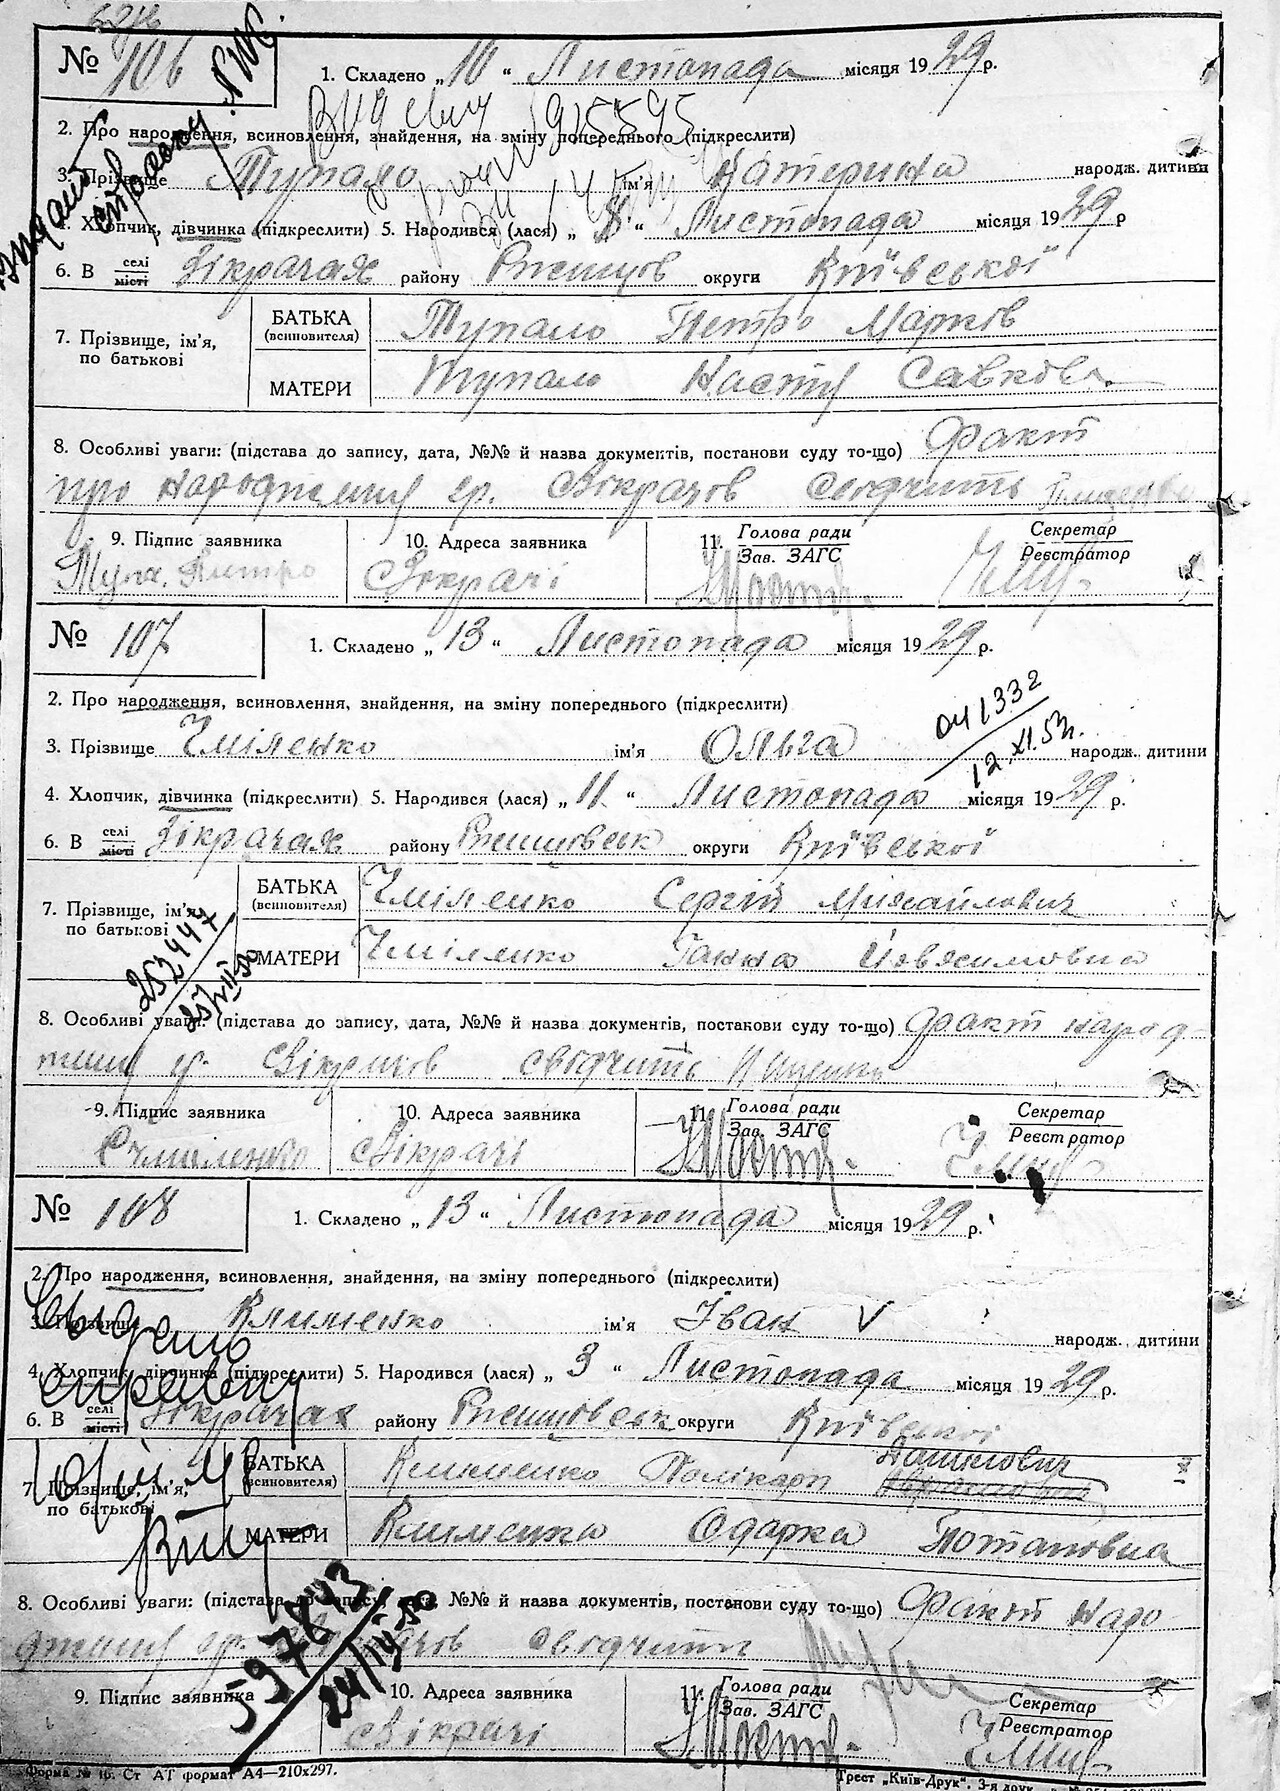 № 106
1. Складено „10“ Листопада місяця 1929 р.
2. Про народження, всиновлення, знайдення, на зміну попереднього (підкреслити)
3. Прізвище Тупало ім'я Катерина народж. дитини
4. Хлопчик, дівчинка (підкреслити) 5. Народився (лася) „8“ Листопада місяця 1929 р
6. В селі місті Зікрачах району Ржищов округи Київської
7. Прізвище, ім'я, по батькові
БАТЬКА (всиновителя) Тупало Петро Марків
МАТЕРИ Тупало Настя Савкова
8. Особливі уваги: (підстава до запису, дата, №№ й назва документів, постанови суду то-що) Факт
про народження гр. Зікрачов свідчить
9. Підпис заявника 10. Адреса заявника 11. Голова ради Зав. ЗАГС Секретар Реєстратор
Тупа. Петро Зікрачі
№ 107
1. Складено „13“ Листопада місяця 1929 р.
2. Про народження, всиновлення, знайдення, на зміну попереднього (підкреслити)
041332
12.XI.53
3. Прізвище Чміленко ім'я Ольга народж. дитини
4. Хлопчик, дівчинка (підкреслити) 5. Народився (лася) „11“ Листопада місяця 1929 р.
6. В селі місті Зікрачах району Ржищовськ округи Київської
7. Прізвище, ім'я, по батькові
БАТЬКА (всиновителя) Чміленко Сергій Михайлович
МАТЕРИ Чміленко Ганна
252447
8. Особливі уваги: (підстава до запису, дата, №№ й назва документів, постакови суду то-що) Факт народ-
ження гр. Зікрачов свідчить
9. Підпис заявника 10. Адреса заявника 11. Голова ради Зав. ЗАГС Секретар Реєстратор
Счміленко Зікрачі
№ 108
1. Складено „13“ Листопада місяця 1929 р.
2. Про народження, всиновлення, знайдення, на зміну попереднього (підкреслити)
3. Прізвище Клименко ім'я Іван V народж. дитини
4. Хлопчик, дівчинка (підкреслити) 5. Народився (лася) „3“ Листопада місяця 1929 р.
6. В селі місті Зікрачах району Ржищовськ округи Київської
7. Прізвище, ім'я, по батькові
БАТЬКА (всиновителя) Клименко Полікарп Данилович
МАТЕРИ Клименко Одарка Потаповна
8. Особливі уваги: (підстава до запису, дата, №№ й назва документів, постанови суду то-що) Факт наро-
дження гр. Зікрачов свідчить
597843
24/IV-50
9. Підпис заявника 10. Адреса заявника 11. Голова ради Зав. ЗАГС Секретар Реєстратор
Зікрачі
Форма № 16. Ст АТ формат А4—210х297.
Трест „Київ-Друк“, 3-я друк.